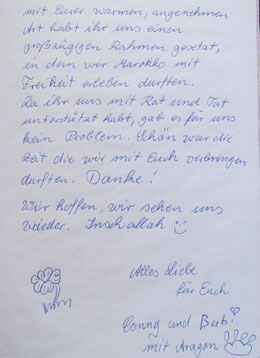 mit Eurer warmen, angenehmen
Art habt ihr uns einen
großzügigen Rahmen gesetzt,
in dem wir Marokko mit
Freiheit erleben durften.
Da ihr uns mit Rat und Tat
unterstützt habt, gab es für uns
kein Problem. Schön war die
Zeit die wir mit Euch verbringen
durften. Danke!
Wir hoffen, wir sehen uns
wieder. Inschallah
Alles Liebe
für Euch
Conny und Bub
mit Aragon